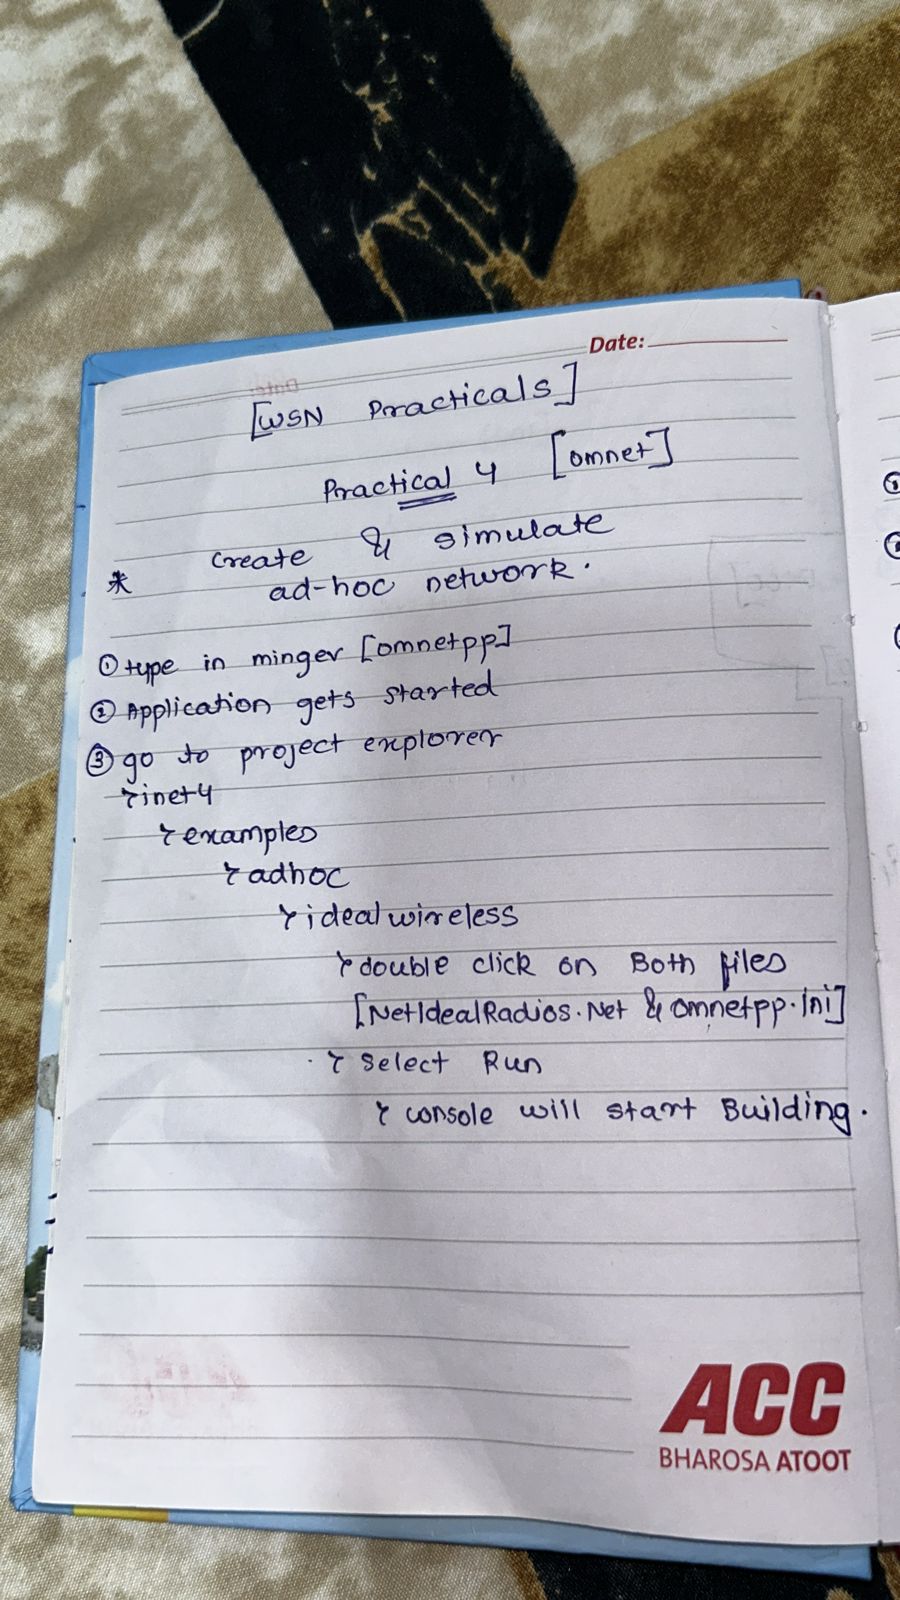 Date:
[WSN Practicals]
Practical 4 [omnet]
* Create & simulate
ad-hoc network.
① type in minger [omnetpp]
② Application gets started
③ go to project explorer
→ inet4
→ examples
→ adhoc
→ idealwireless
→ double click on Both files
[NetIdealRadios.Net & omnetpp.Ini]
→ Select Run
→ console will start Building.
ACC
BHAROSA ATOOT